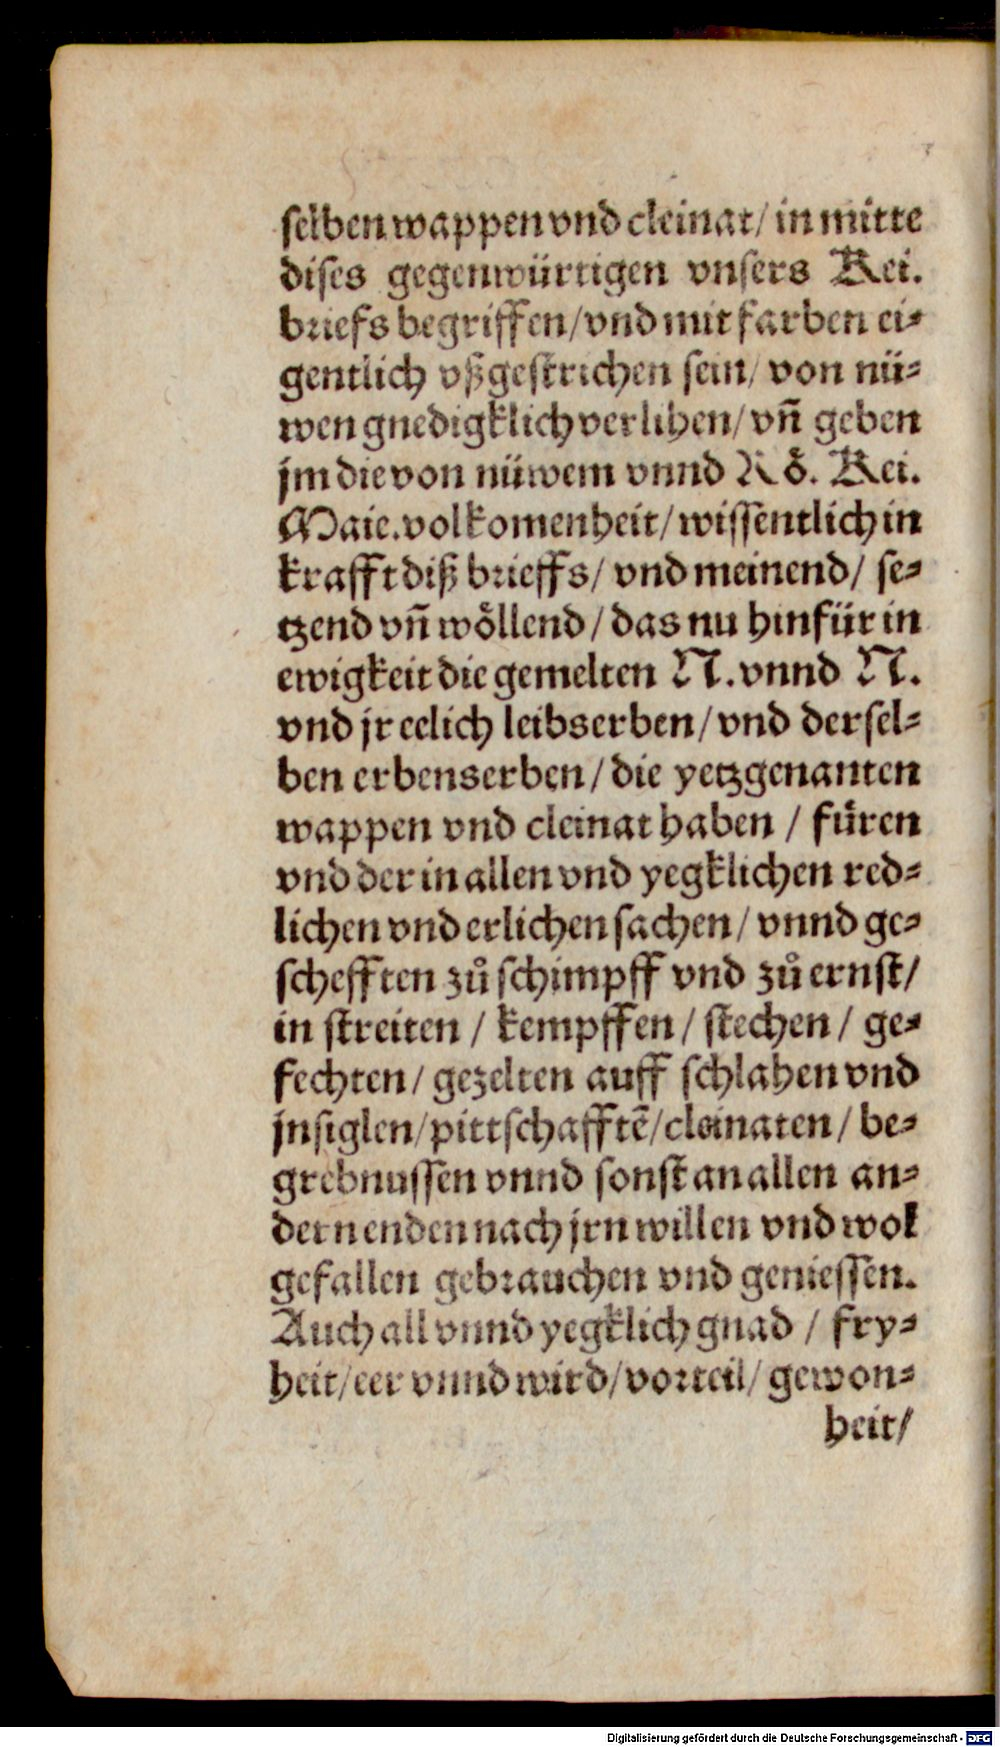 selben wappen vnd cleinat/ in mitte
dises gegenwürtigen vnsers Kei.
briefs begriffen/vnd mit farben ei⸗
gentlich vßgestrichen sein/ von nü⸗
wen gnedigklich verlihen/ vñ geben
jm die von nüwem vnnd Rȏ. Kei.
Maie. volkomenheit/ wissentlich in
krafft diß brieffs/ vnd meinend/ se⸗
tzend vñ woͤllend/ das nu hinfür in
ewigkeit die gemelten N. vnnd N.
vnd jr eelich leibserben/ vnd dersel⸗
ben erbenserben/ die yetzgenanten
wappen vnd cleinat haben / fuͤren
vnd der in allen vnd yegklichen red⸗
lichen vnd erlichen sachen/ vnnd ge⸗
schefften zuͦ schimpff vnd zuͦ ernst/
in streiten / kempffen/ stechen / ge⸗
fechten/ gezelten auff schlahen vnd
jnsiglen/pittschafftẽ/cleinaten/ be⸗
grebnussen vnnd sonst an allen an⸗
dern enden nach jrn willen vnd wol
gefallen gebrauchen vnd geniessen.
Auch all vnnd yegklich gnad / fry⸗
heit/eer vnnd wird/vorteil/ gewon⸗
heit/
Digitalisierung gefördert durch die Deutsche Forschungsgemeinschaft - DFG